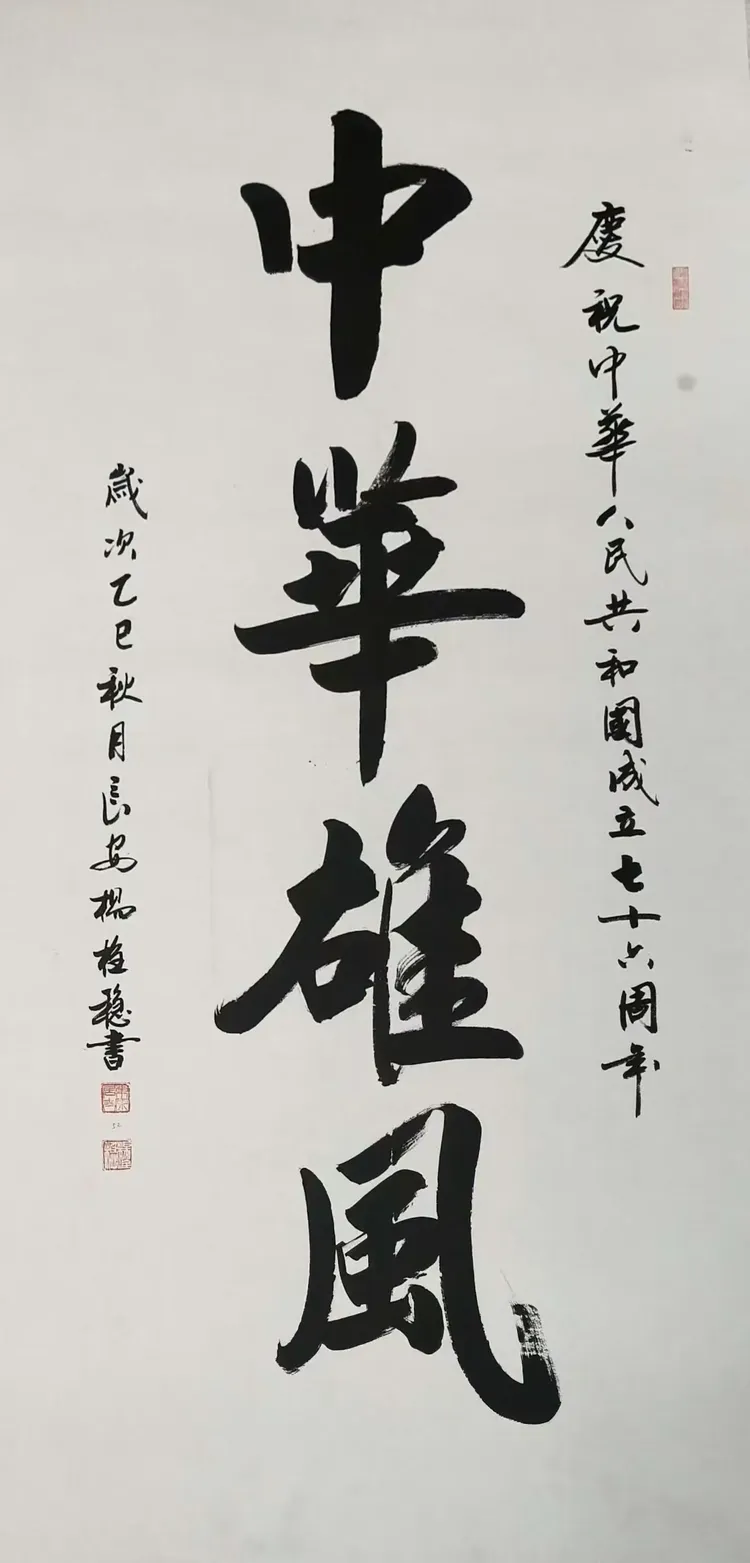 慶祝中華人民共和國成立七十六周年
中華雄風
歲次乙巳秋月長安楊柱穩書